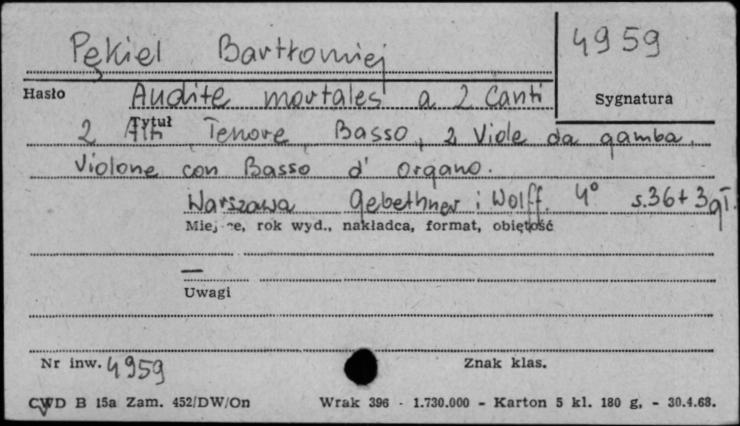 Pękiel Bartłomiej
4959
Hasło
Audite mortales a 2 Canti
Sygnatura
Tytuł
2 Alti Tenore, Basso, 2 Viole da gamba,
Violone con Basso d' organo.
Warszawa Gebethner i Wolff. 4° s.36+3gł.
Miejsce, rok wyd., nakładca, format, objętość
—
Uwagi
Nr inw. 4959
Znak klas.
CWD B 15a Zam. 452/DW/On
Wrak 396 - 1.730.000 - Karton 5 kl. 180 g. - 30.4.68.